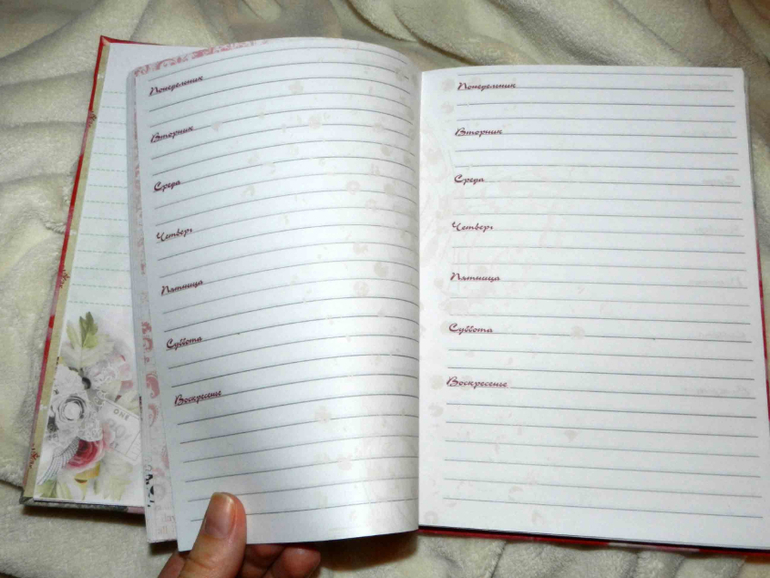 Понедельник
Вторник
Среда
Четверг
Пятница
Суббота
Воскресенье
Понедельник
Вторник
Среда
Четверг
Пятница
Суббота
Воскресенье
ONE